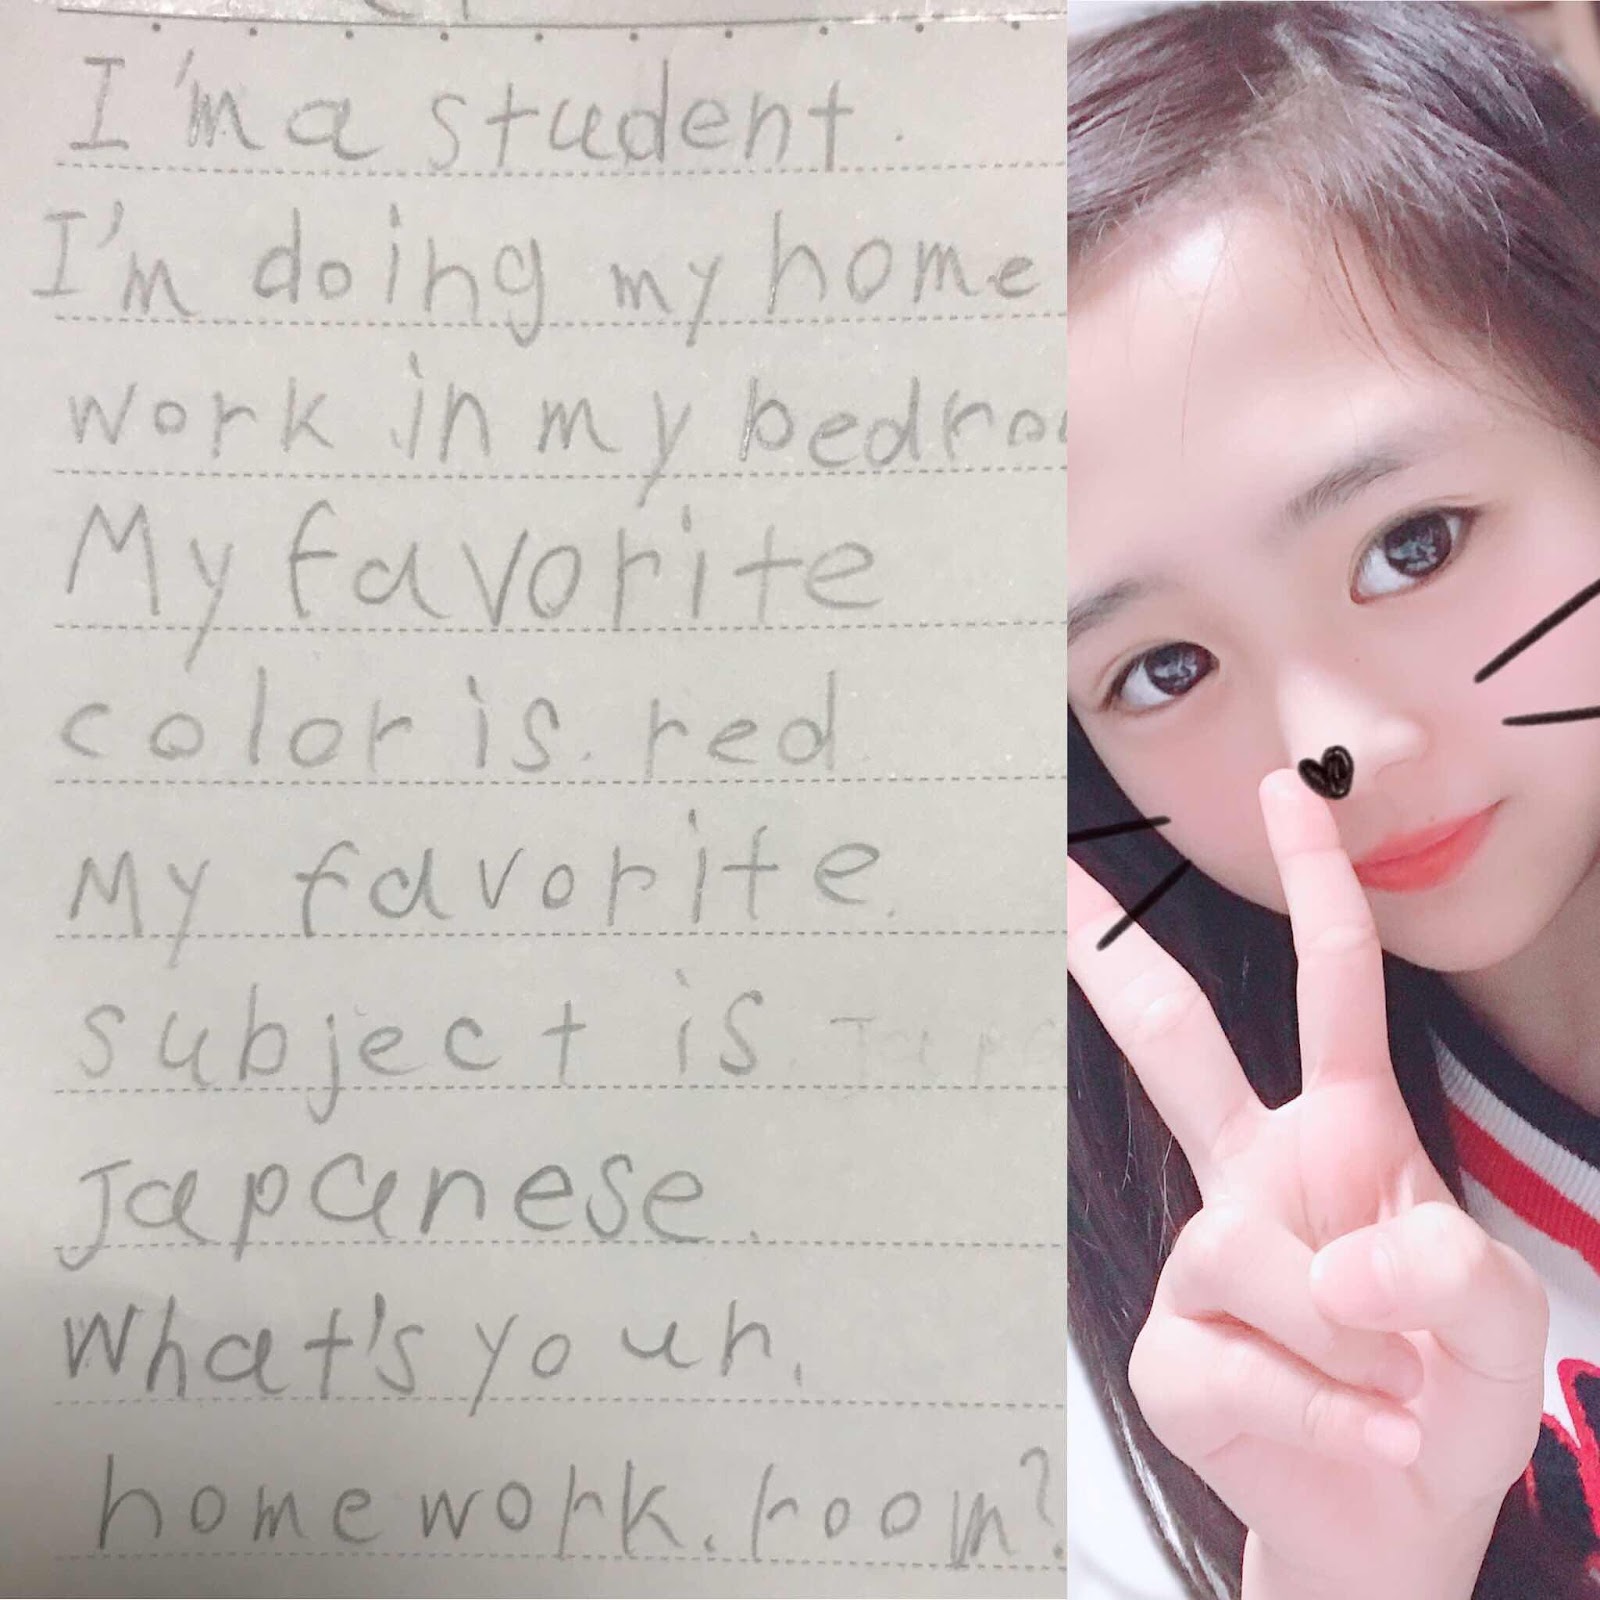 I'm a student.
I'm doing my home
work in my bedroo
My favorite
color is. red.
My favorite.
subject is.
Japanese.
What's your.
homework. room?